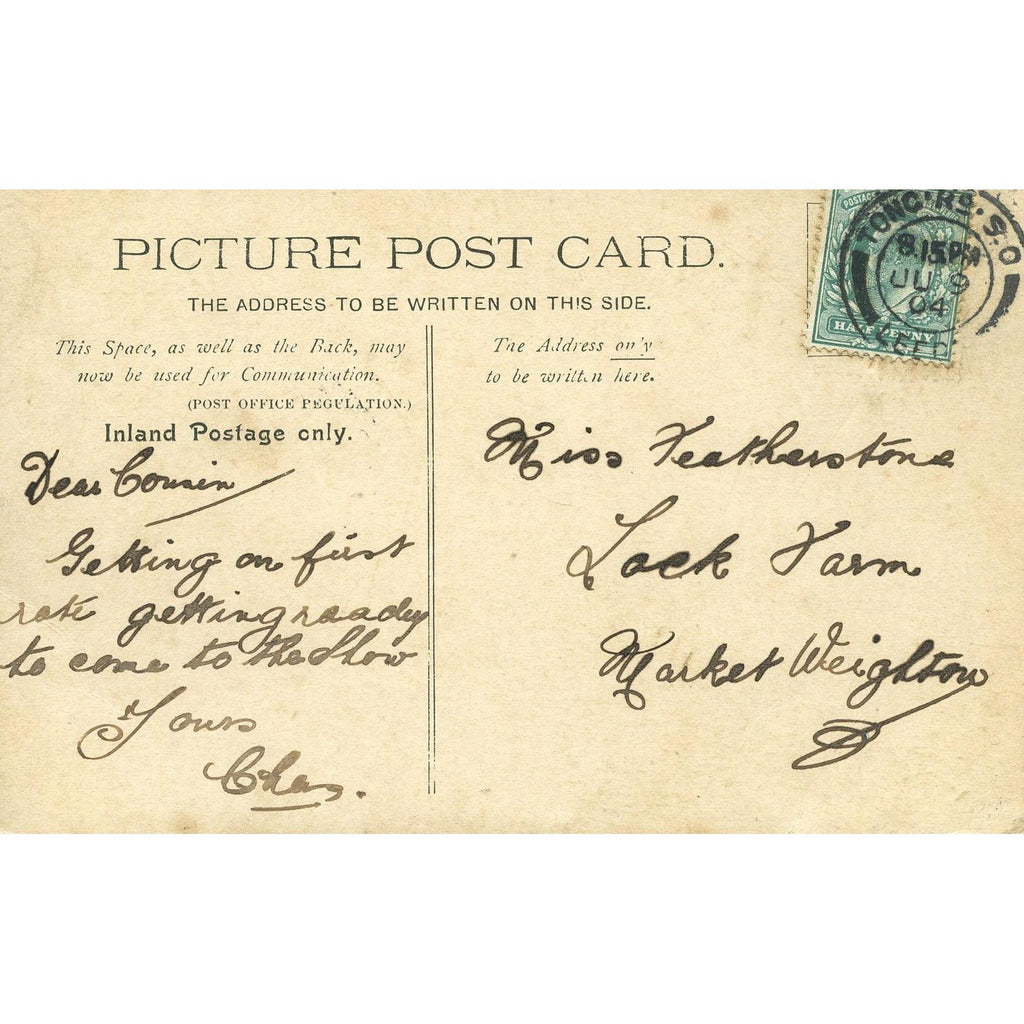 PICTURE POST CARD.
THE ADDRESS TO BE WRITTEN ON THIS SIDE.
This Space, as well as the Back, may
now be used for Communication.
(POST OFFICE REGULATION.)
Inland Postage only.
Dear Cousin
Getting on first
rate getting raadey
to come to the Show
Yours
Chas.
The Address only
to be written here.
Miss Featherstone
Lock Farm
Market Weighton
POSTAGE
HALFPENNY
TONG. RD. S.O
8.15PM
JU 9
04